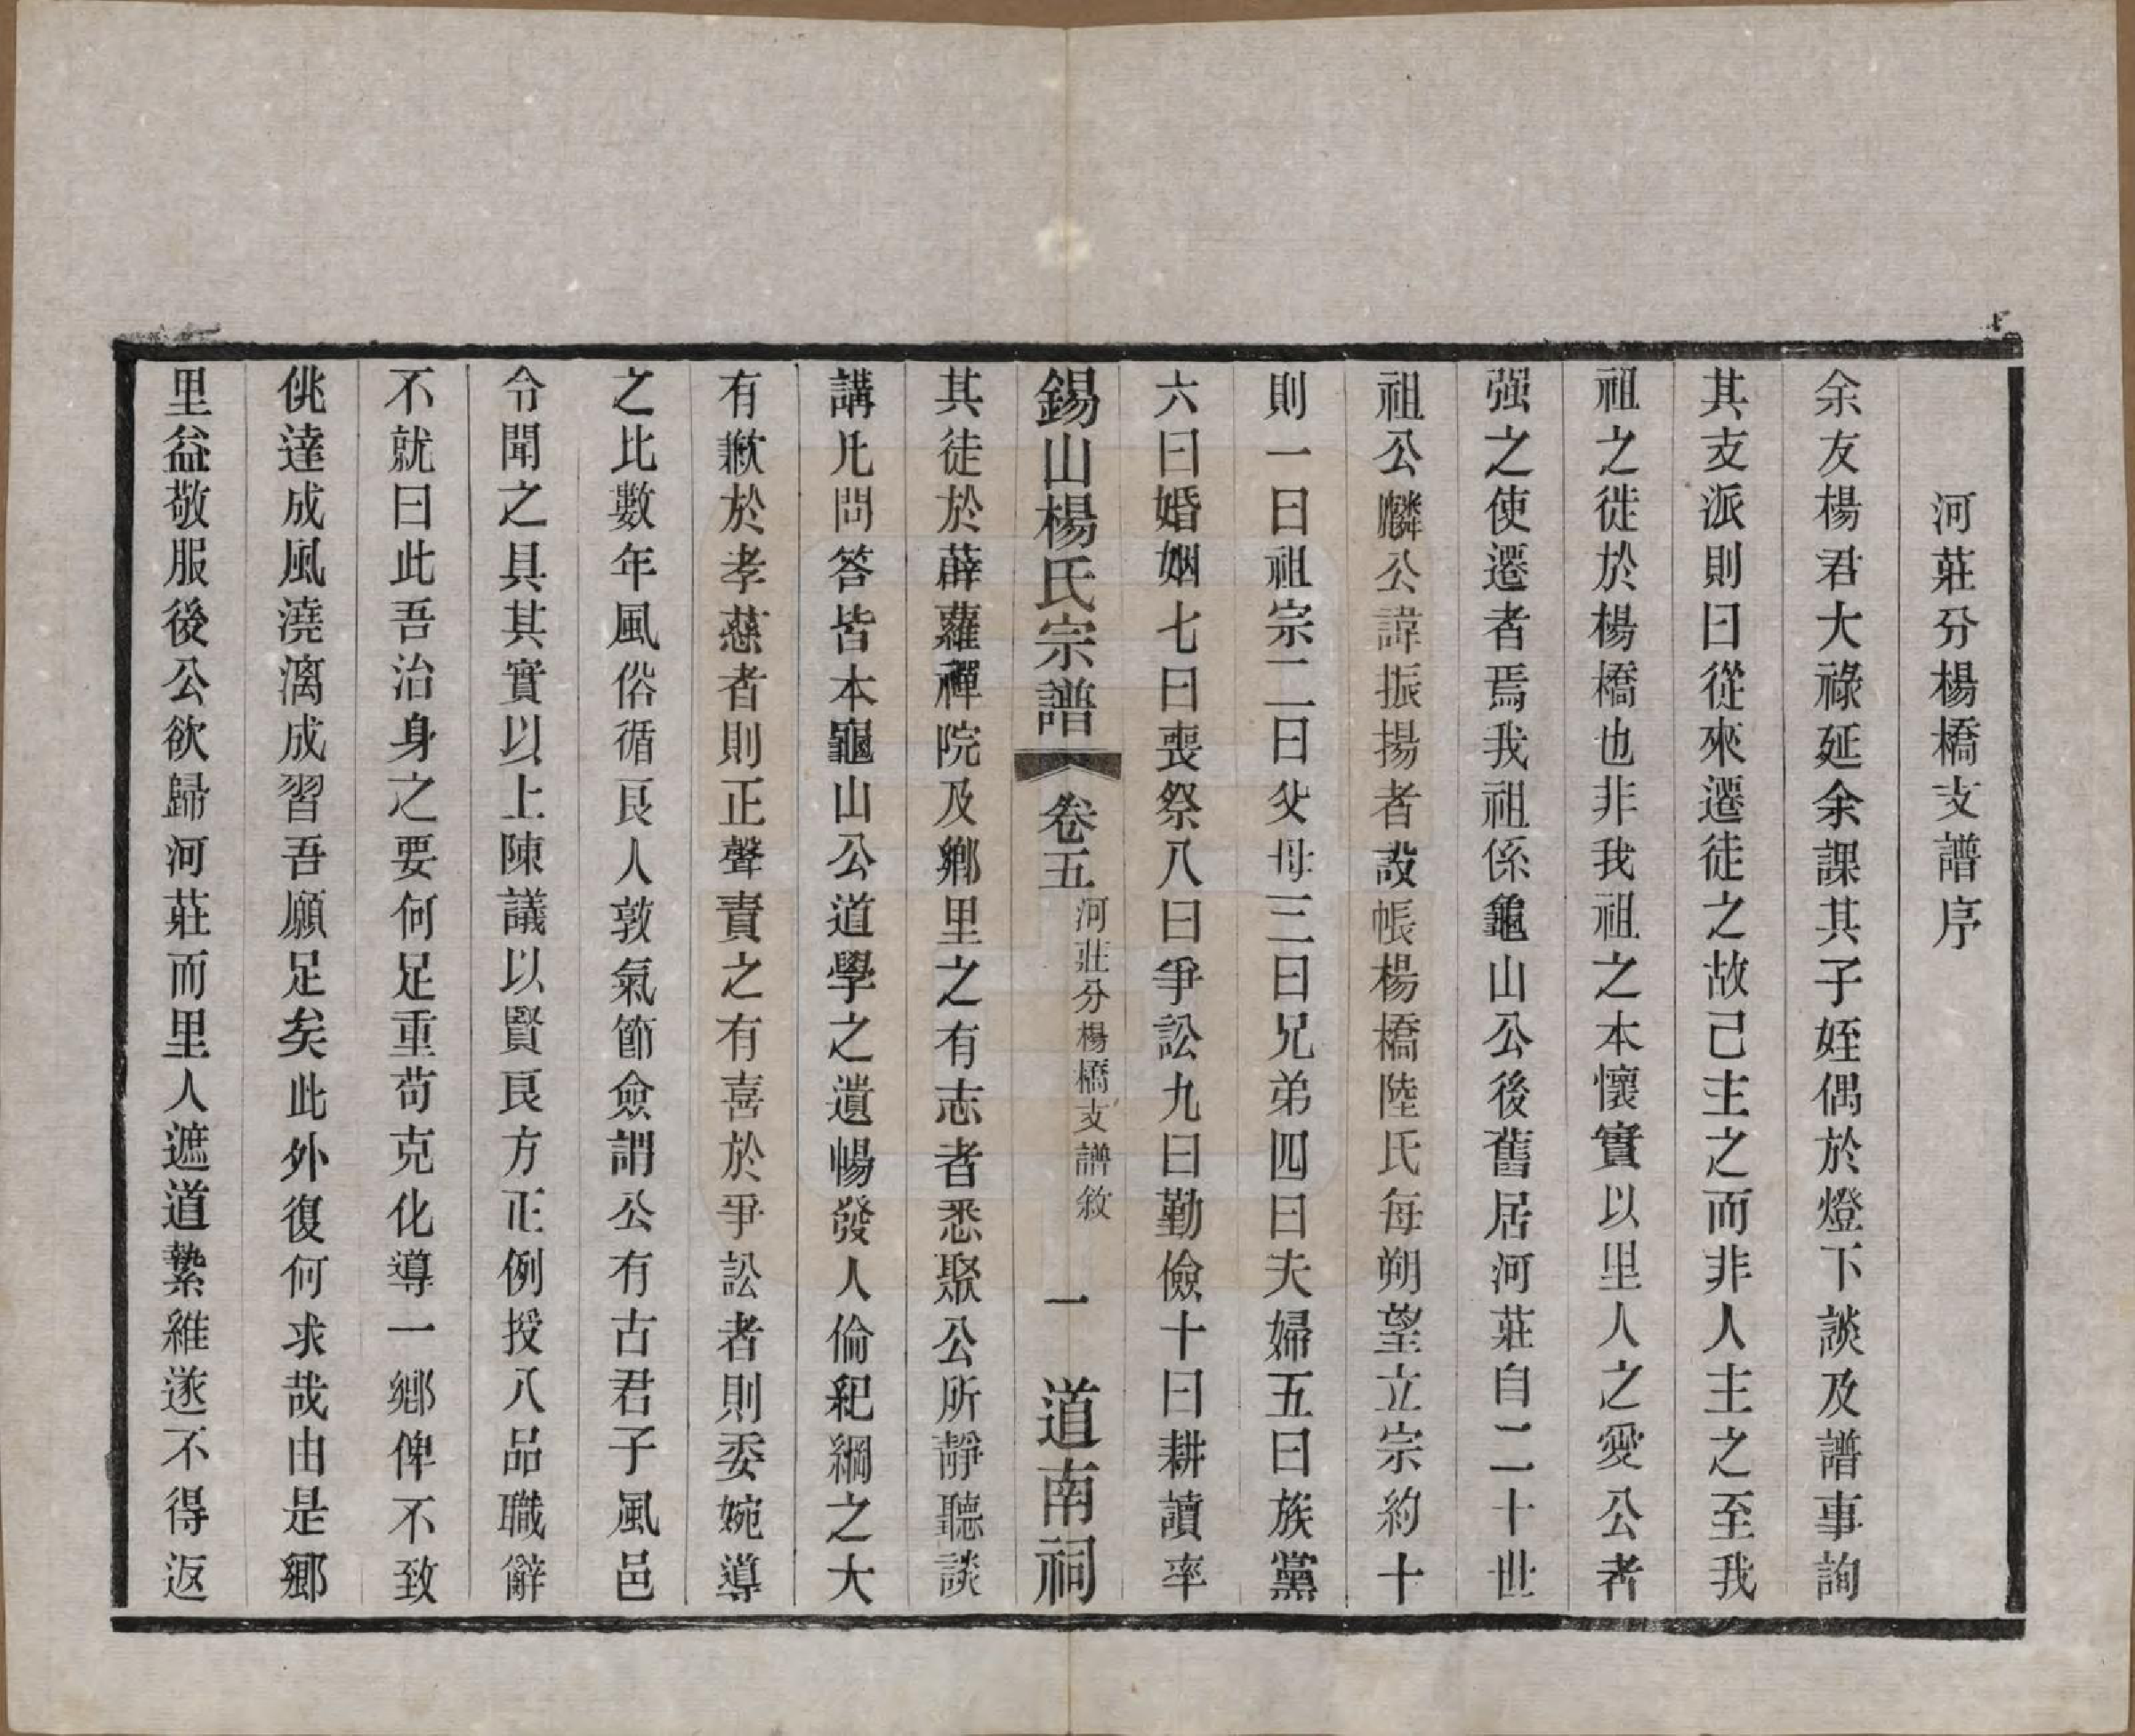 河莊分楊橋支譜序
余友楊君大祿延余課其子姪偶於燈下談及譜事詢
其支派則曰從來遷徒之故己主之而非人主之至我
祖之徙於楊橋也非我祖之本懷實以里人之愛公者
强之使遷者焉我祖係龜山公後舊居河莊自二十世
祖公麟公諱振揚者設帳楊橋陸氏每朔望立宗約十
則一曰祖宗二曰父母三曰兄弟四曰夫婦五曰族黨
六曰婚姻七曰喪祭八曰爭訟九曰勤儉十曰耕讀率
錫山楊氏宗譜 卷五 河莊分楊橋支譜敘 一 道南祠
其徒於薜蘿禪院及鄉里之有志者悉聚公所靜聽談
講凡問答皆本龜山公道學之遺暢發人倫紀綱之大
有歉於孝慈者則正聲責之有喜於爭訟者則委婉導
之比數年風俗循良人敦氣節僉謂公有古君子風邑
令聞之具其實以上陳議以賢良方正例授八品職辭
不就曰此吾治身之要何足重苟克化導一鄉俾不致
佻達成風澆漓成習吾願足矣此外復何求哉由是鄉
里益敬服後公欲歸河莊而里人遮道縶維遂不得返